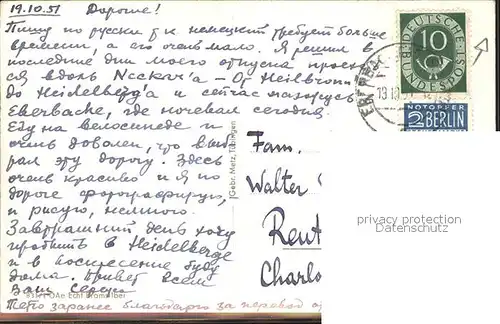 19.10.51 Дорогие!
Пишу по русски т к немецкий требует больше
времени, а его очень мало. Я решил в
последние дни моего отпуска
вдоль Neckar'a – От Heilbronn
до Heidelberg'a и сейчас нахожусь
Eberbache, где ночевал сегодня.
Еду на велосипеде и
очень доволен, что выб
рал эту дорогу. Здесь
очень красиво и я по
дороге фотографирую,
и рисую, немного.
Завтрашний день хочу
пробыть в Heidelberge
и в воскресение буду
дома. Привет всем
Ваш Сергей
заранее благодарю за перевод
Gebr. Metz, Tübingen
Echt Bromsilber
Fam.
Walter
Reut
Charlo
DEUTSCHE BUNDESPOST
10
NOTOPFER
2 BERLIN
privacy protection
Datenschutz